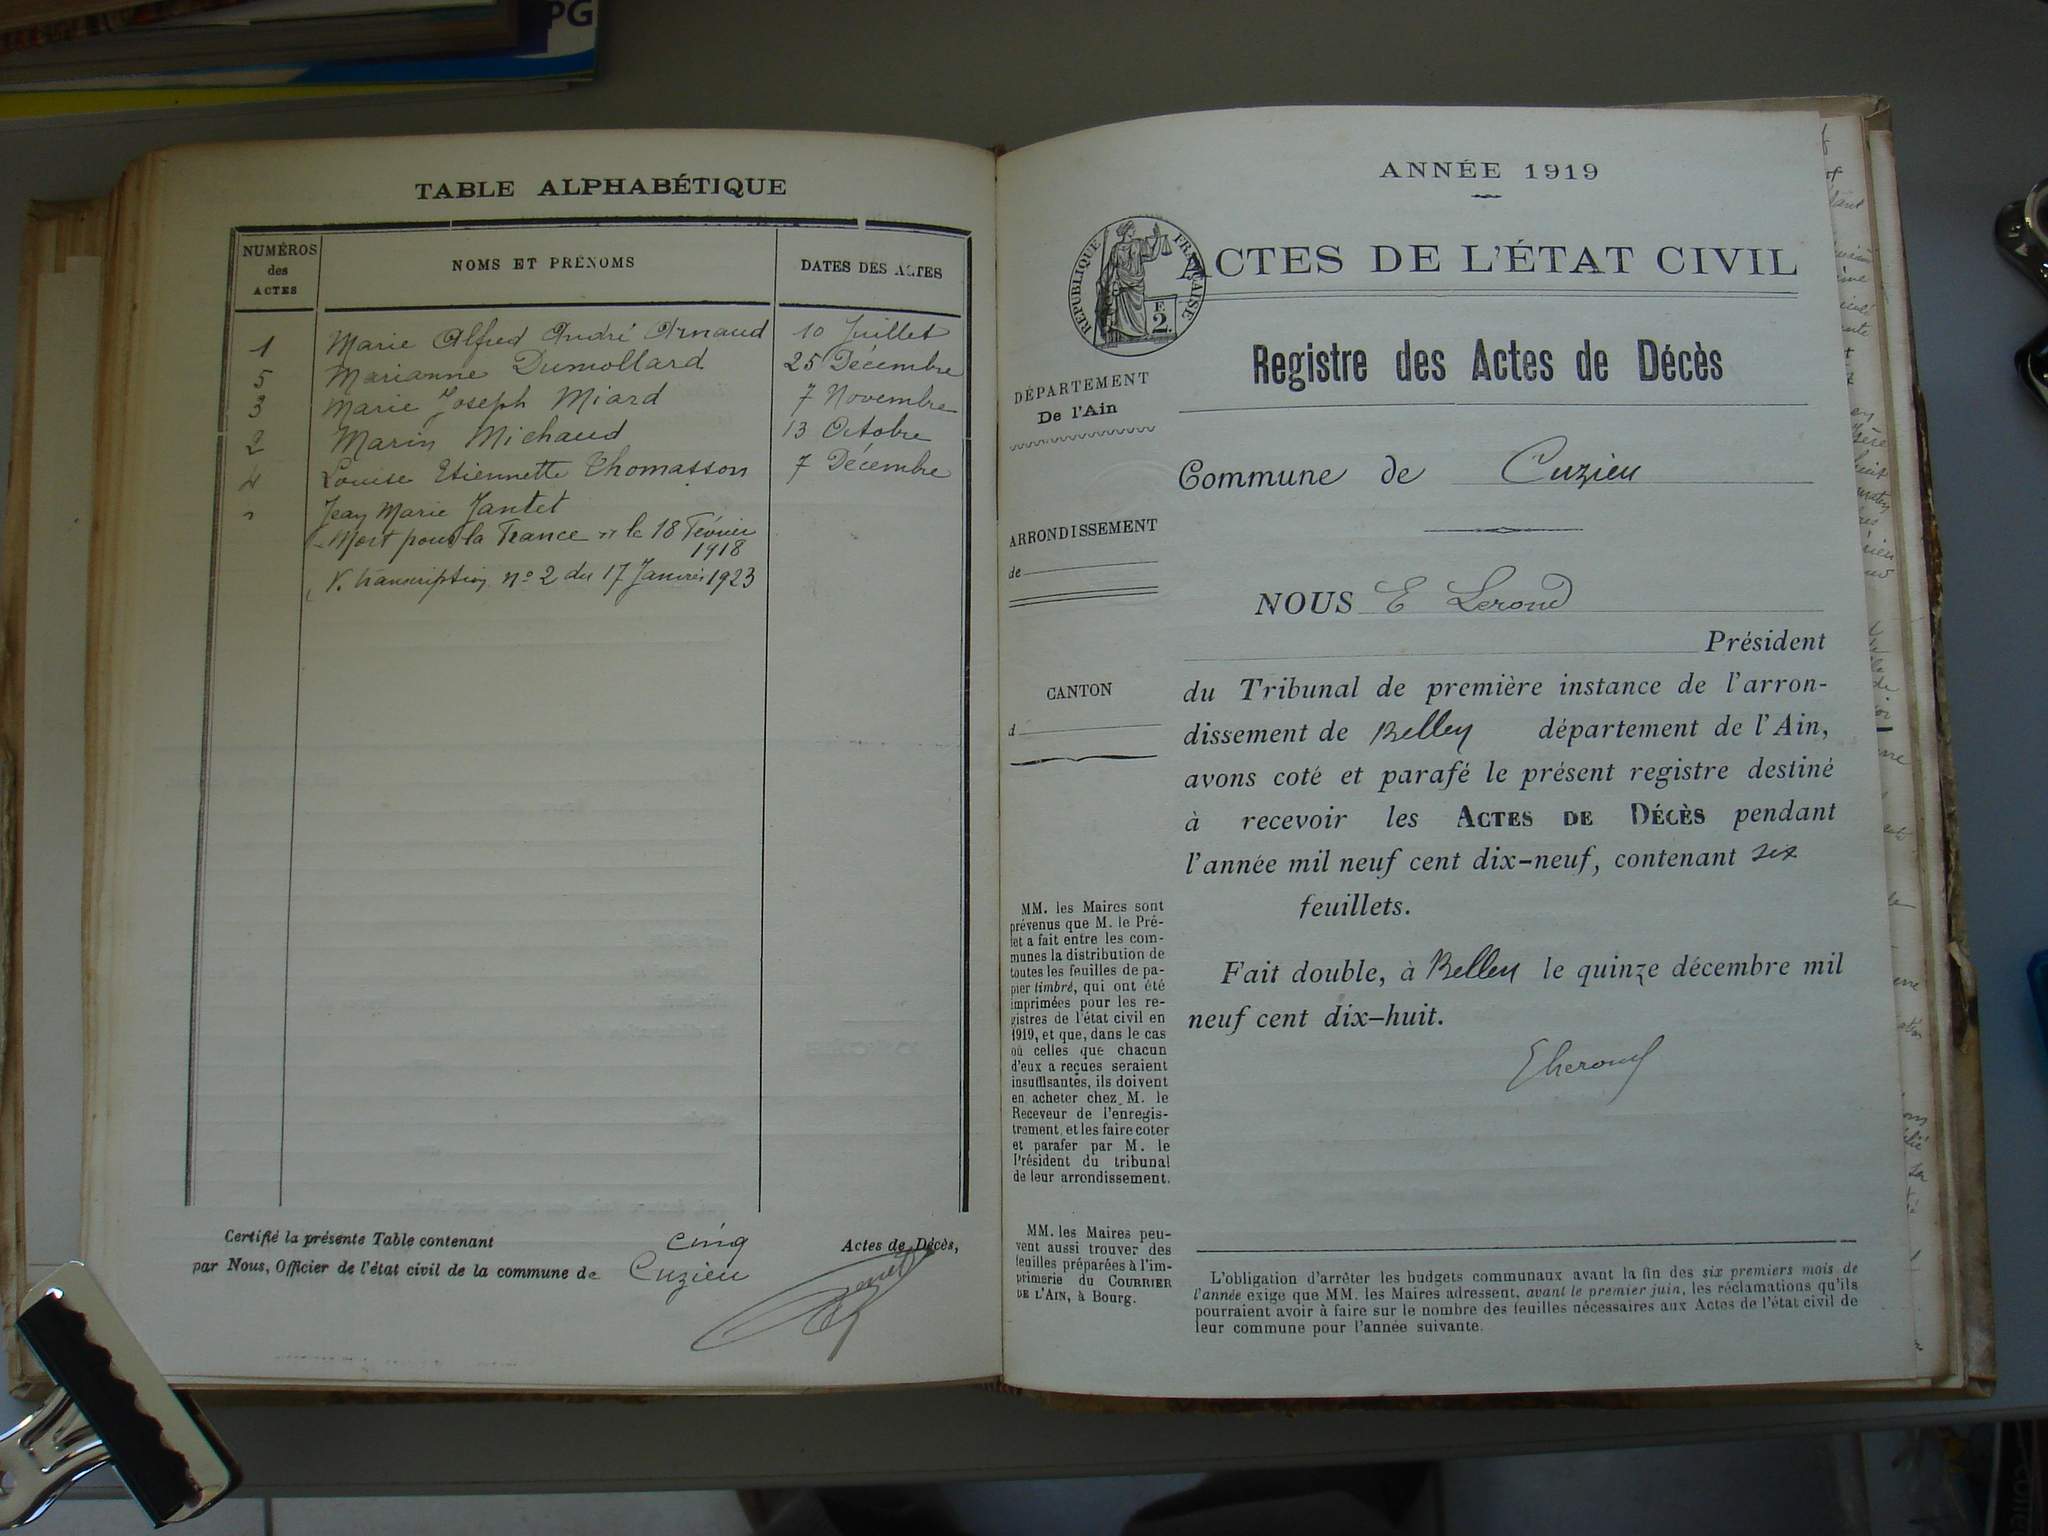 PG
TABLE ALPHABÉTIQUE
NUMÉROS des ACTES NOMS ET PRÉNOMS DATES DES ACTES
1 Marie Alfred André Arnaud 10 Juillet
5 Marianne Dumollard 25 Décembre
3 Marie Joseph Miard 7 Novembre
2 Marin Michaud 13 Octobre
4 Louise Etiennette Thomasson 7 Décembre
Jean Marie Jantet
Mort pour la France le 18 Février
1918
V. transcription n° 2 du 17 Janvier 1923
Certifié la présente Table contenant cinq Actes de Décès,
par Nous, Officier de l'état civil de la commune de Cuzieu
ANNÉE 1919
RÉPUBLIQUE FRANÇAISE
E
2.
ACTES DE L'ÉTAT CIVIL
Registre des Actes de Décès
DÉPARTEMENT
De l'Ain
Commune de Cuzieu
ARRONDISSEMENT
de
CANTON
d
NOUS E Lerond
Président
du Tribunal de première instance de l'arron-
dissement de Belley département de l'Ain,
avons coté et parafé le présent registre destiné
à recevoir les ACTES DE DÉCÈS pendant
l'année mil neuf cent dix-neuf, contenant six
feuillets.
Fait double, à Belley le quinze décembre mil
neuf cent dix-huit.
MM. les Maires sont
prévenus que M. le Pré-
fet a fait entre les com-
munes la distribution de
toutes les feuilles de pa-
pier timbré, qui ont été
imprimées pour les re-
gistres de l'état civil en
1919, et que, dans le cas
où celles que chacun
d'eux a reçues seraient
insuffisantes, ils doivent
en acheter chez M. le
Receveur de l'enregis-
trement, et les faire coter
et parafer par M. le
Président du tribunal
de leur arrondissement.
MM. les Maires peu-
vent aussi trouver des
feuilles préparées à l'im-
primerie du COURRIER
DE L'AIN, à Bourg.
L'obligation d'arrêter les budgets communaux avant la fin des six premiers mois de
l'année exige que MM. les Maires adressent, avant le premier juin, les réclamations qu'ils
pourraient avoir à faire sur le nombre des feuilles nécessaires aux Actes de l'état civil de
leur commune pour l'année suivante.